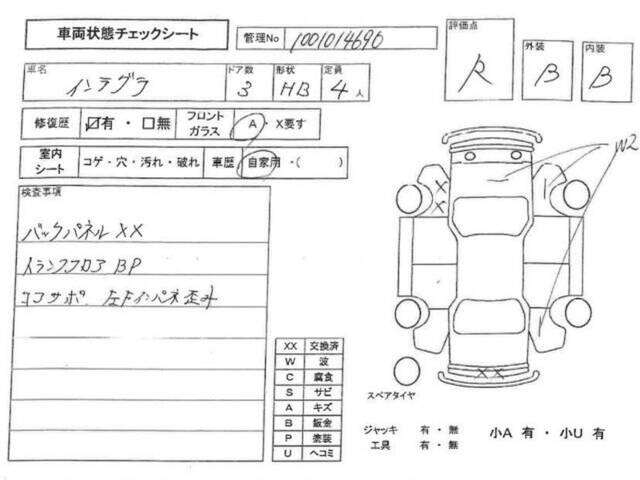 車両状態チェックシート
管理No 1001014690
評価点 R
外装 B
内装 B
車名 インテグラ
ドア数 3
形状 HB
定員 4 人
修復歴 ☑有・□無
フロントガラス A・X要す
室内シート コゲ・穴・汚れ・破れ
車歴 自家用・( )
検査事項
バックパネルXX
トランクフロア BP
コアサポ、左Fインパネ歪み
W2
X
X
XX
XX 交換済
W 波
C 腐食
S サビ
A キズ
B 鈑金
P 塗装
U ヘコミ
スペアタイヤ
ジャッキ 有・無
工具 有・無
小A 有・小U 有